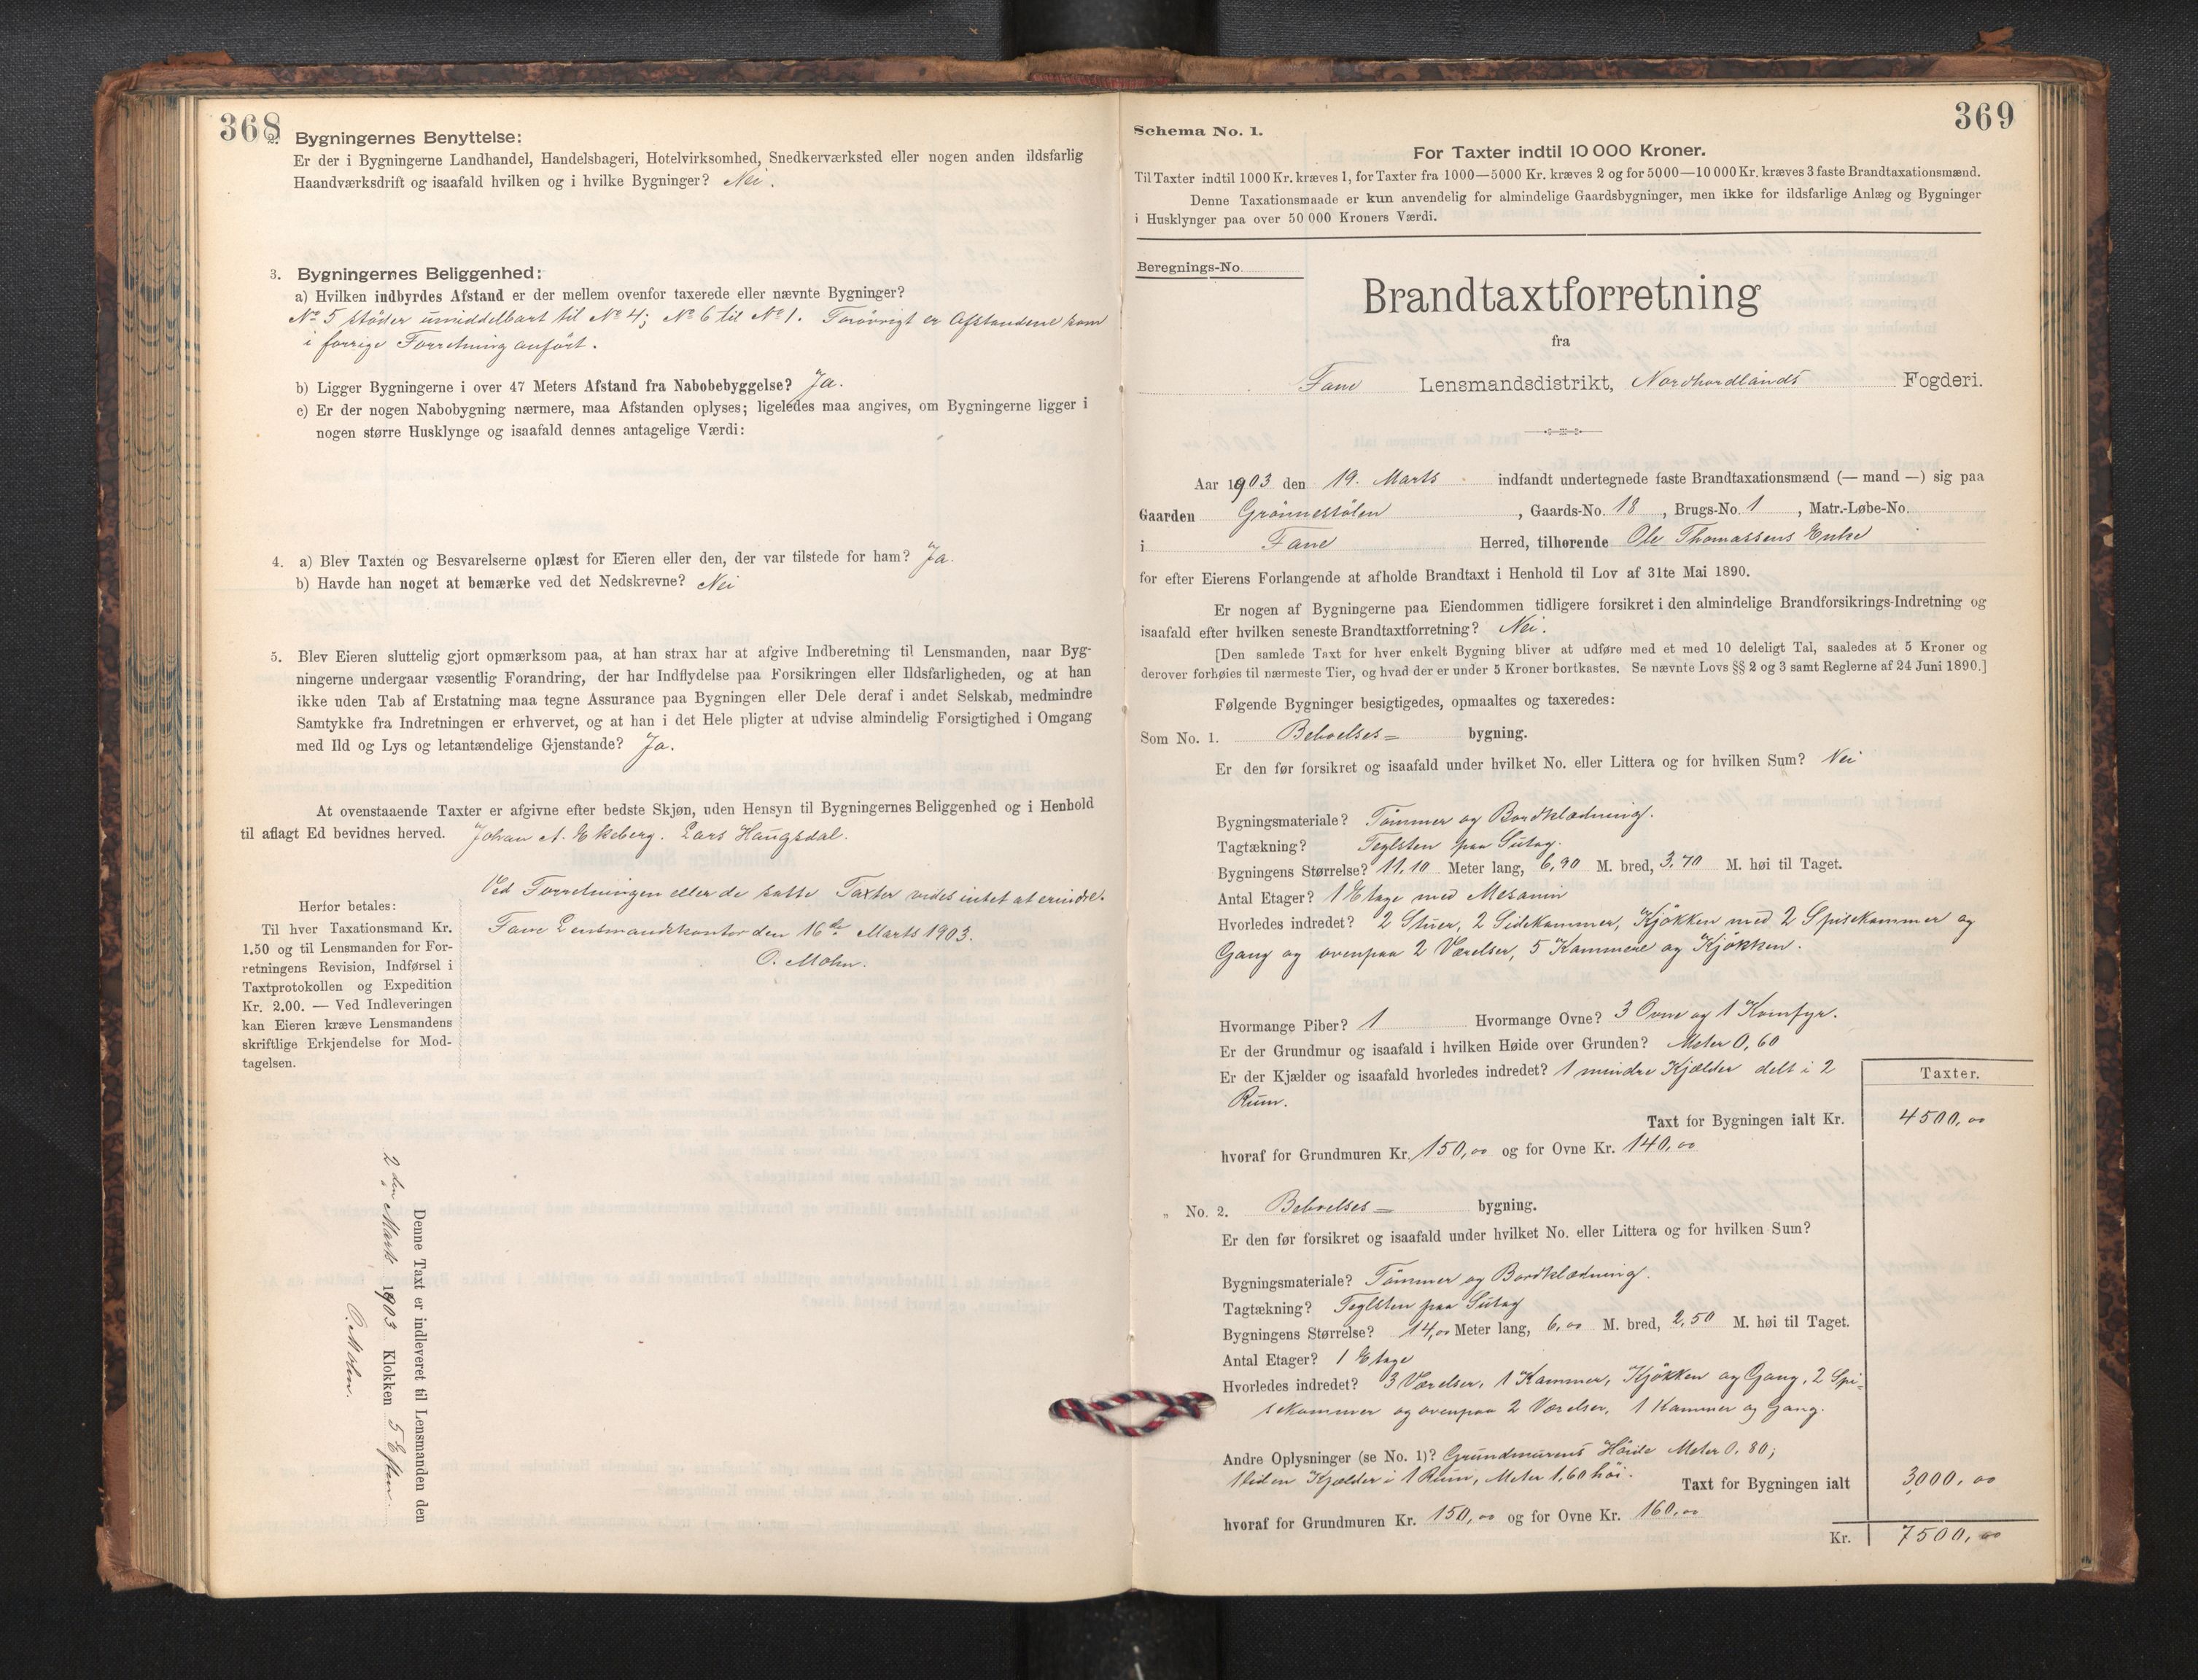 368
2. Bygningernes Benyttelse:
Er der i Bygningerne Landhandel, Handelsbageri, Hotelvirksomhed, Snedkerværksted eller nogen anden ildsfarlig
Haandværksdrift og isaafald hvilken og i hvilke Bygninger? Nei.
3. Bygningernes Beliggenhed:
a) Hvilken indbyrdes Afstand er der mellem ovenfor taxerede eller nævnte Bygninger?
No 5 støder umiddelbart til No 4; No 6 til No 1. Forøvrigt er Afstandene som
i forrige Forretning anført.
b) Ligger Bygningerne i over 47 Meters Afstand fra Nabobebyggelse? Ja.
c) Er der nogen Nabobygning nærmere, maa Afstanden oplyses; ligeledes maa angives, om Bygningerne ligger i
nogen større Husklynge og isaafald dennes antagelige Værdi:
4. a) Blev Taxten og Besvarelserne oplæst for Eieren eller den, der var tilstede for ham? Ja.
b) Havde han noget at bemærke ved det Nedskrevne? Nei
5. Blev Eieren sluttelig gjort opmærksom paa, at han strax har at afgive Indberetning til Lensmanden, naar Byg-
ningerne undergaar væsentlig Forandring, der har Indflydelse paa Forsikringen eller Ildsfarligheden, og at han
ikke uden Tab af Erstatning maa tegne Assurance paa Bygningen eller Dele deraf i andet Selskab, medmindre
Samtykke fra Indretningen er erhvervet, og at han i det Hele pligter at udvise almindelig Forsigtighed i Omgang
med Ild og Lys og letantændelige Gjenstande? Ja.
At ovenstaaende Taxter er afgivne efter bedste Skjøn, uden Hensyn til Bygningernes Beliggenhed og i Henhold
til aflagt Ed bevidnes herved. Johan A. Ekeberg. Lars Haugsdal.
Ved Forretningen eller de satte Taxter vides intet at erindre.
Fane Lensmandskontor den 16de Marts 1903.
O. Mohn.
Herfor betales:
Til hver Taxationsmand Kr.
1.50 og til Lensmanden for For-
retningens Revision, Indførsel i
Taxtprotokollen og Expedition
Kr. 2.00. — Ved Indleveringen
kan Eieren kræve Lensmandens
skriftlige Erkjendelse for Mod-
tagelsen.
Denne Taxt er indleveret til Lensmanden den
2den Marts 1903 Klokken 5 Efterm.
O. Mohn.
369
Schema No. 1.
For Taxter indtil 10 000 Kroner.
Til Taxter indtil 1000 Kr. kræves 1, for Taxter fra 1000—5000 Kr. kræves 2 og for 5000—10 000 Kr. kræves 3 faste Brandtaxationsmænd.
Denne Taxationsmaade er kun anvendelig for almindelige Gaardsbygninger, men ikke for ildsfarlige Anlæg og Bygninger
i Husklynger paa over 50 000 Kroners Værdi.
Beregnings-No.
Brandtaxtforretning
fra
Fane Lensmandsdistrikt, Nordhordlands Fogderi.
Aar 1903 den 19. Marts indfandt undertegnede faste Brandtaxationsmænd (— mand —) sig paa
Gaarden Grønnestølen, Gaards-No. 18, Brugs-No. 1, Matr.-Løbe-No.
i Fane Herred, tilhørende Ole Thomassens Enke
for efter Eierens Forlangende at afholde Brandtaxt i Henhold til Lov af 31te Mai 1890.
Er nogen af Bygningerne paa Eiendommen tidligere forsikret i den almindelige Brandforsikrings-Indretning og
isaafald efter hvilken seneste Brandtaxtforretning? Nei.
[Den samlede Taxt for hver enkelt Bygning bliver at udføre med et med 10 deleligt Tal, saaledes at 5 Kroner og
derover forhøies til nærmeste Tier, og hvad der er under 5 Kroner bortkastes. Se nævnte Lovs §§ 2 og 3 samt Reglerne af 24 Juni 1890.]
Følgende Bygninger besigtigedes, opmaaltes og taxeredes:
Som No. 1. Beboelses= bygning.
Er den før forsikret og isaafald under hvilket No. eller Littera og for hvilken Sum? Nei
Bygningsmateriale? Tømmer og Bordklædning.
Tagtækning? Teglsten paa Sutag.
Bygningens Størrelse? 11,10 Meter lang, 6,90 M. bred, 3,70 M. høi til Taget.
Antal Etager? 1 Etage med Mesanin
Hvorledes indredet? 2 Stuer, 2 Sidekammer, Kjøkken med 2 Spisekammer og
Gang og ovenpaa 2 Værelser, 5 Kammere og Kjøkken.
Hvormange Piber? 1 Hvormange Ovne? 3 Ovne og 1 Komfyr.
Er der Grundmur og isaafald i hvilken Høide over Grunden? Meter 0,60
Er der Kjælder og isaafald hvorledes indredet? 1 mindre Kjælder delt i 2
Rum.
Taxter.
Taxt for Bygningen ialt Kr. 4500,00
hvoraf for Grundmuren Kr. 150,00 og for Ovne Kr. 140,00
„ No. 2. Beboelses= bygning.
Er den før forsikret og isaafald under hvilket No. eller Littera og for hvilken Sum?
Bygningsmateriale? Tømmer og Bordklædning.
Tagtækning? Teglsten paa Sutag
Bygningens Størrelse? 14,00 Meter lang, 6,00 M. bred, 2,50 M. høi til Taget.
Antal Etager? 1 Etage
Hvorledes indredet? 3 Værelser, 1 Kammer, Kjøkken og Gang, 2 Spi-
sekammer og ovenpaa 2 Værelser, 1 Kammer og Gang.
Andre Oplysninger (se No. 1)? Grundmurens Høide Meter 0,80;
1 liden Kjælder i 1 Rum, Meter 1,60 høi. Taxt for Bygningen ialt 3000,00
hvoraf for Grundmuren Kr. 150,00 og for Ovne Kr. 160,00
Kr. 7500,00